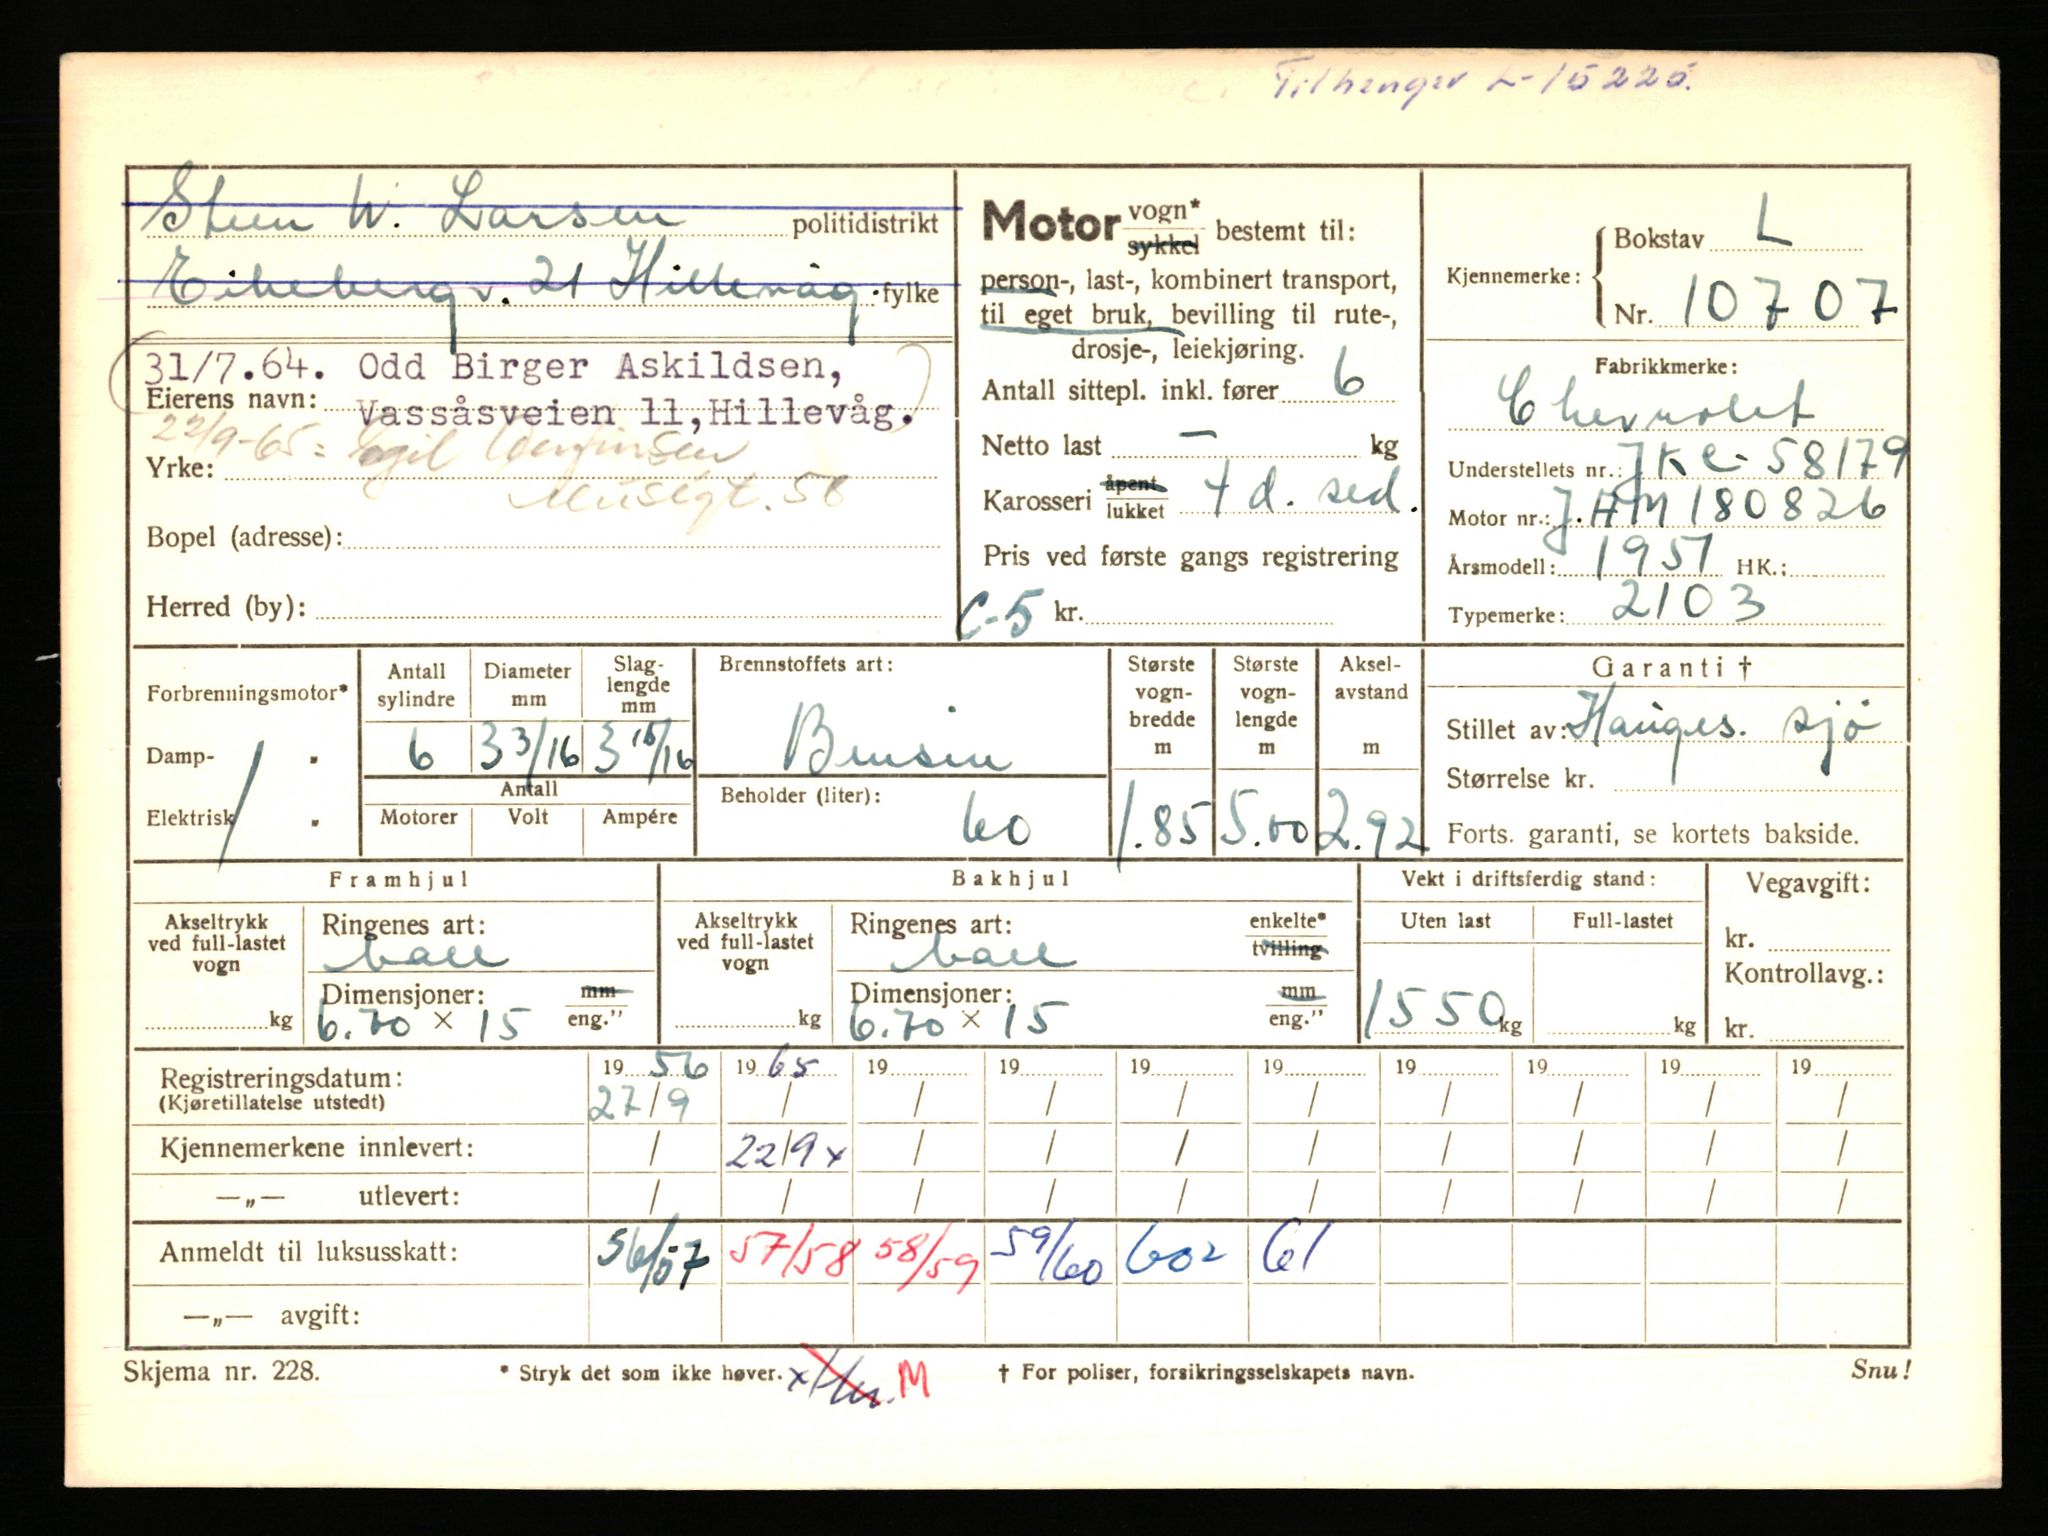 Tilhenger L-15225.
Steen W. Larsen politidistrikt
Eikeberg v. 21 Hillevåg fylke
31/7.64. Odd Birger Askildsen,
Eierens navn: Vassåsveien 11, Hillevåg.
22/9-65: Egil
Yrke:
Musegt. 58
Bopel (adresse):
Herred (by):
Motor vogn* sykkel bestemt til:
person-, last-, kombinert transport,
til eget bruk, bevilling til rute-,
drosje-, leiekjøring.
Antall sittepl. inkl. fører 6
Netto last — kg
Karosseri åpent lukket 4 d. sed.
Pris ved første gangs registrering
C-5 kr.
Kjennemerke: Bokstav L
Nr. 10707
Fabrikkmerke:
Chevrolet
Understellets nr.: JKC-58179
Motor nr.: J.HM180826
Årsmodell: 1951 HK.:
Typemerke: 2103
Forbrenningsmotor*
Damp- "
Elektrisk "
Antall sylindre Diameter mm Slag-lengde mm
6 3 3/16 3 15/16
Antall
Motorer Volt Ampére
Brennstoffets art:
Bensin
Beholder (liter):
60
Største vogn-bredde m 1.85
Største vogn-lengde m 5.00
Aksel-avstand m 2.92
Garanti †
Stillet av: Hauges. sjø
Størrelse kr.
Forts. garanti, se kortets bakside.
Framhjul
Akseltrykk ved full-lastet vogn
kg
Ringenes art:
ball
Dimensjoner: mm eng."
6.70 × 15
Bakhjul
Akseltrykk ved full-lastet vogn
kg
Ringenes art: enkelte* tvilling
ball
Dimensjoner: mm eng."
6.70 × 15
Vekt i driftsferdig stand:
Uten last Full-lastet
1550 kg kg
Vegavgift:
kr.
Kontrollavg.:
kr.
Registreringsdatum: 19 56 19 65 19 19 19 19 19 19 19 19
(Kjøretillatelse utstedt) 27/9 / / / / / / / / /
Kjennemerkene innlevert: / 22/9 x / / / / / / / /
—„— utlevert: / / / / / / / / / /
Anmeldt til luksusskatt: 56/57 57/58 58/59 59/60 602 61
—„— avgift:
Skjema nr. 228. * Stryk det som ikke høver. x M † For poliser, forsikringsselskapets navn. Snu!